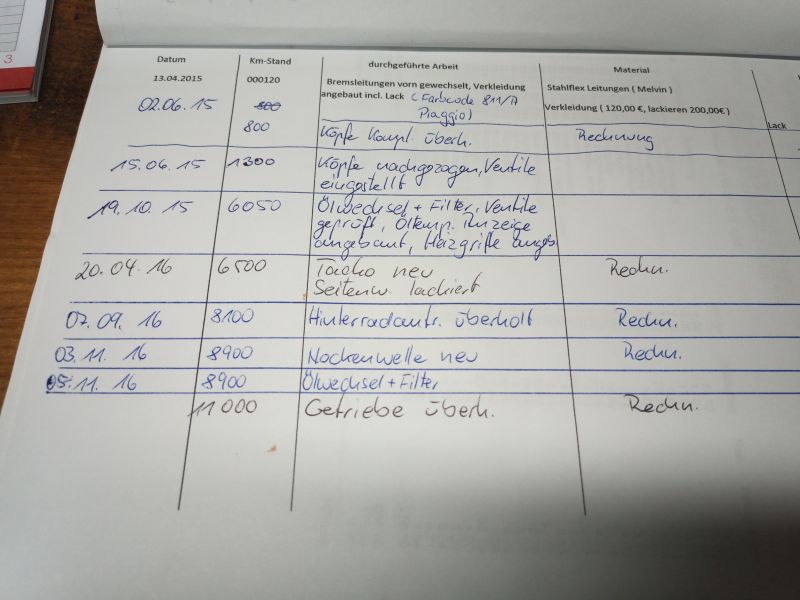 3
Datum Km-Stand durchgeführte Arbeit Material
13.04.2015 000120 Bremsleitungen vorn gewechselt, Verkleidung Stahlflex Leitungen ( Melvin )
angebaut incl. Lack ( Farbcode 811/A Verkleidung ( 120,00 €, lackieren 200,00€ )
Piaggio) Lack
02.06.15 800
800 Köpfe kompl. überh. Rechnung
15.06.15 1300 Köpfe nachgezogen, Ventile
eingestellt
19.10.15 6050 Ölwechsel + Filter, Ventile
geprüft, Öltemp. Anzeige
angebaut, Heizgriffe angeb.
20.04.16 6500 Tacho neu Rechn.
Seitenw. lackiert
07.09.16 8100 Hinterradantr. überholt Rechn.
03.11.16 8900 Nockenwelle neu Rechn.
05.11.16 8900 Ölwechsel + Filter
11000 Getriebe überh. Rechn.